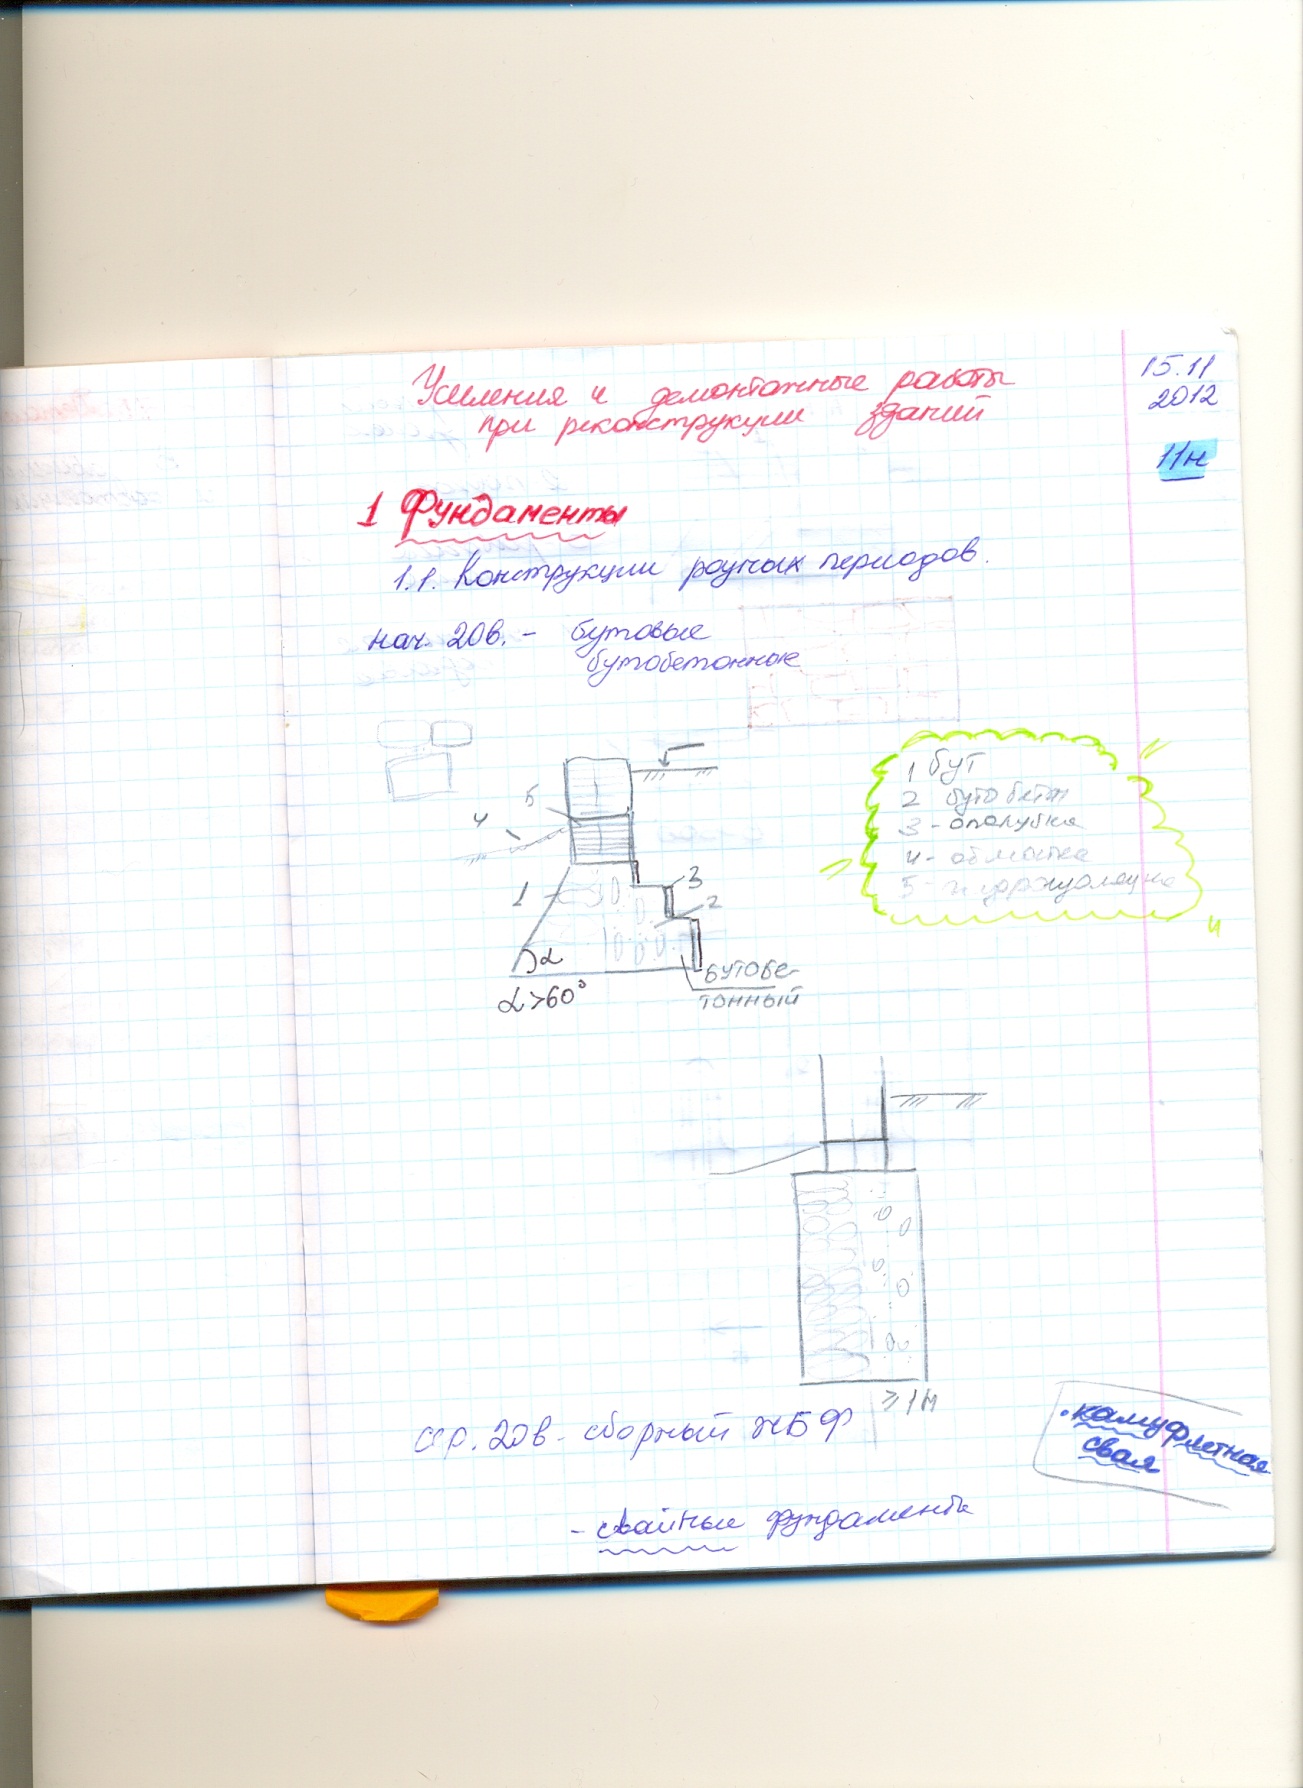 Усиления и демонтажные работы
при реконструкции зданий
15.11
2012
11н
1 Фундаменты
1.1. Конструкции разных периодов.
нач. 20в. - бутовые
бутобетонные
1 бут
2 бутобетон
3 - опалубка
4 - отмостка
5 - гидроизоляция
5
4
1
3
2
α
α>60°
бутобе-
тонный
≥1м
сер. 20в - сборный ЖБФ
• камуфлетная
свая
- свайные фундаменты